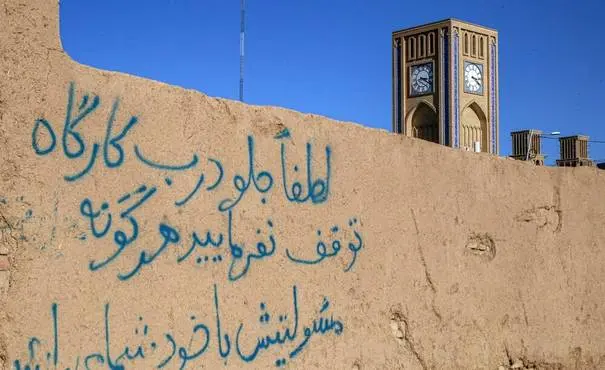 لطفاً جلو درب کارگاه
توقف نفرمایید هر گونه
مسئولیتش با خود شما می